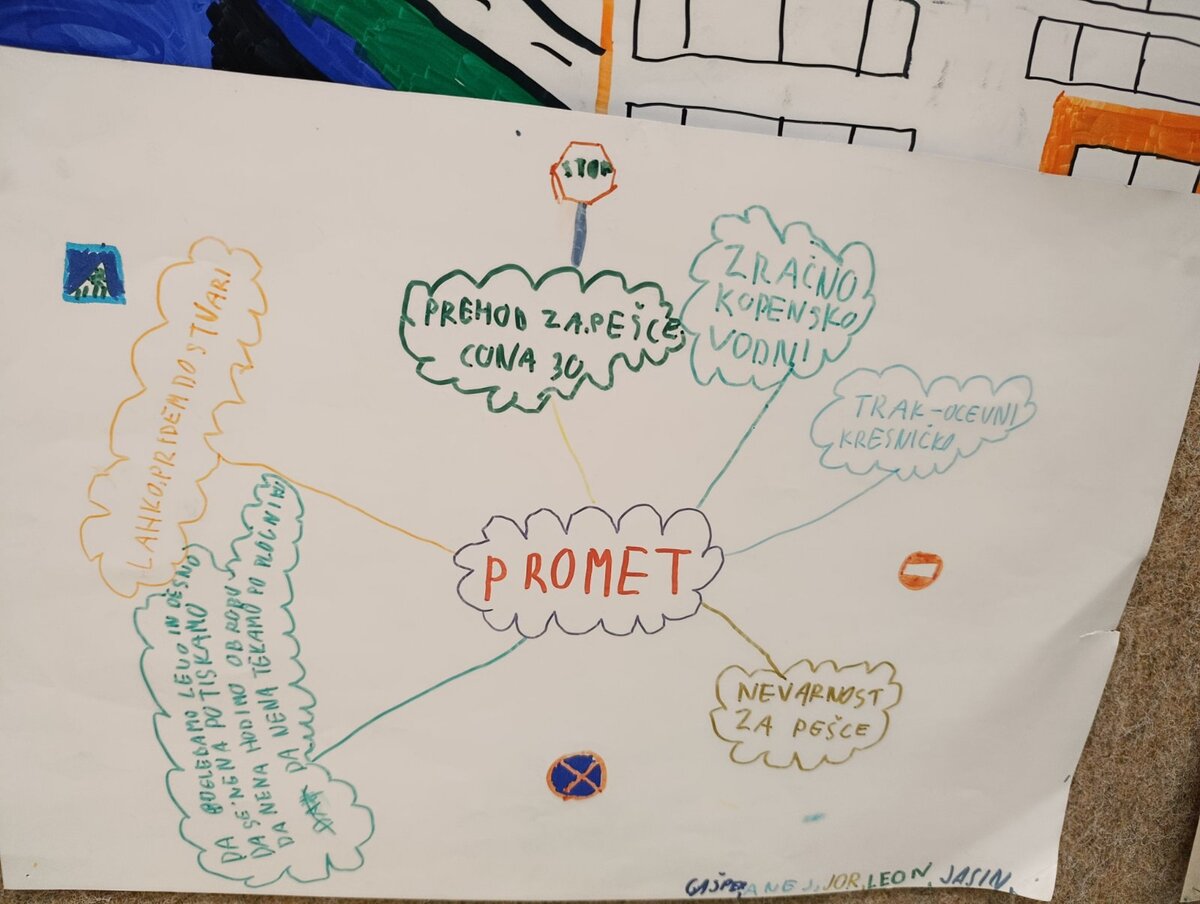 STOP
PREHOD ZA.PEŠCE
CONA 30
ZRAČNO
KOPENSKO
VODNI
TRAK-OCEVNI
KRESNIČKO
LAHKO.PRIDEM DO STVARI
PROMET
DA POGLEDAMO LEVO IN DESNO
DA SE NENA POTISKAMO
DA NENA HODIMO OB ROBU
DA NENA TEKAMO PO PLOČNIKU
NEVARNOST
ZA PEŠCE
GAŠPER, ANEJ, JOR, LEON, JASIN